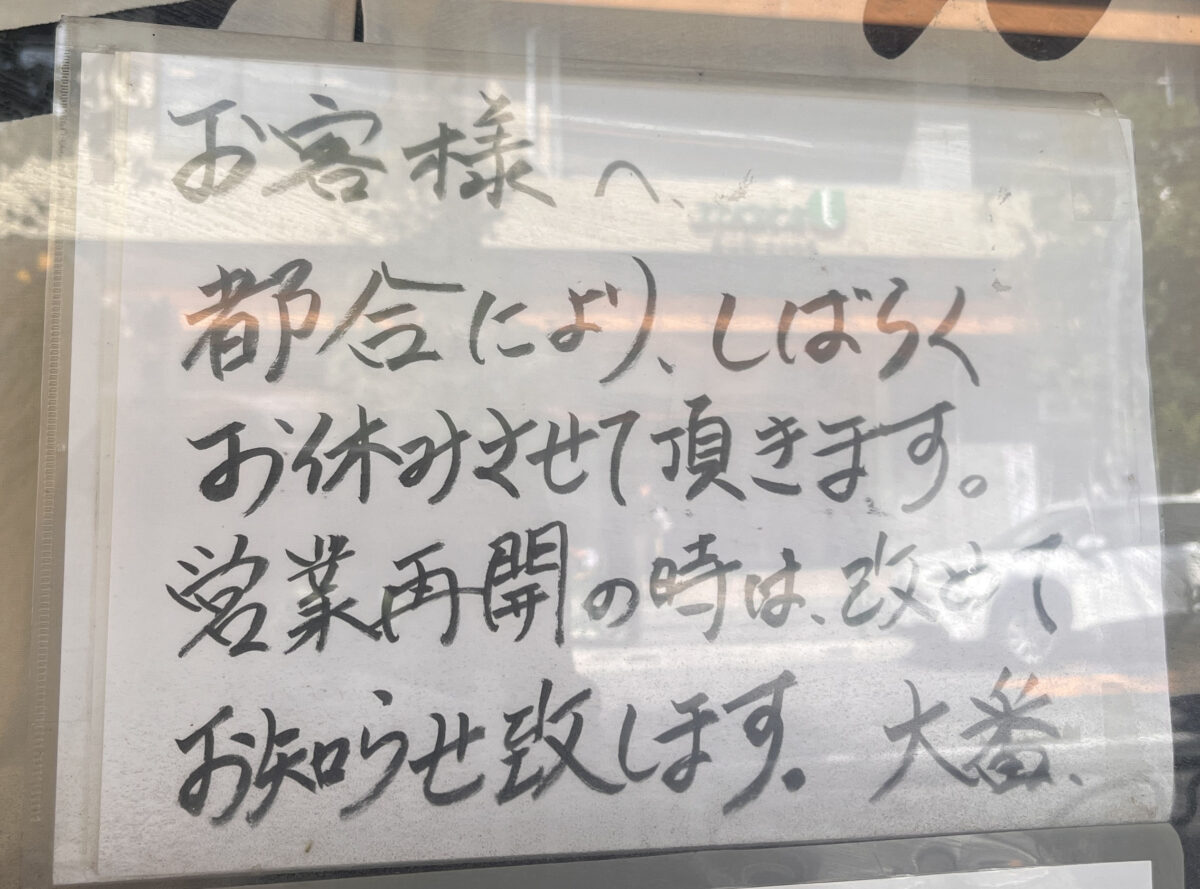 お客様へ、
都合により、しばらく
お休みさせて頂きます。
営業再開の時は、改めて
お知らせ致します。大番、